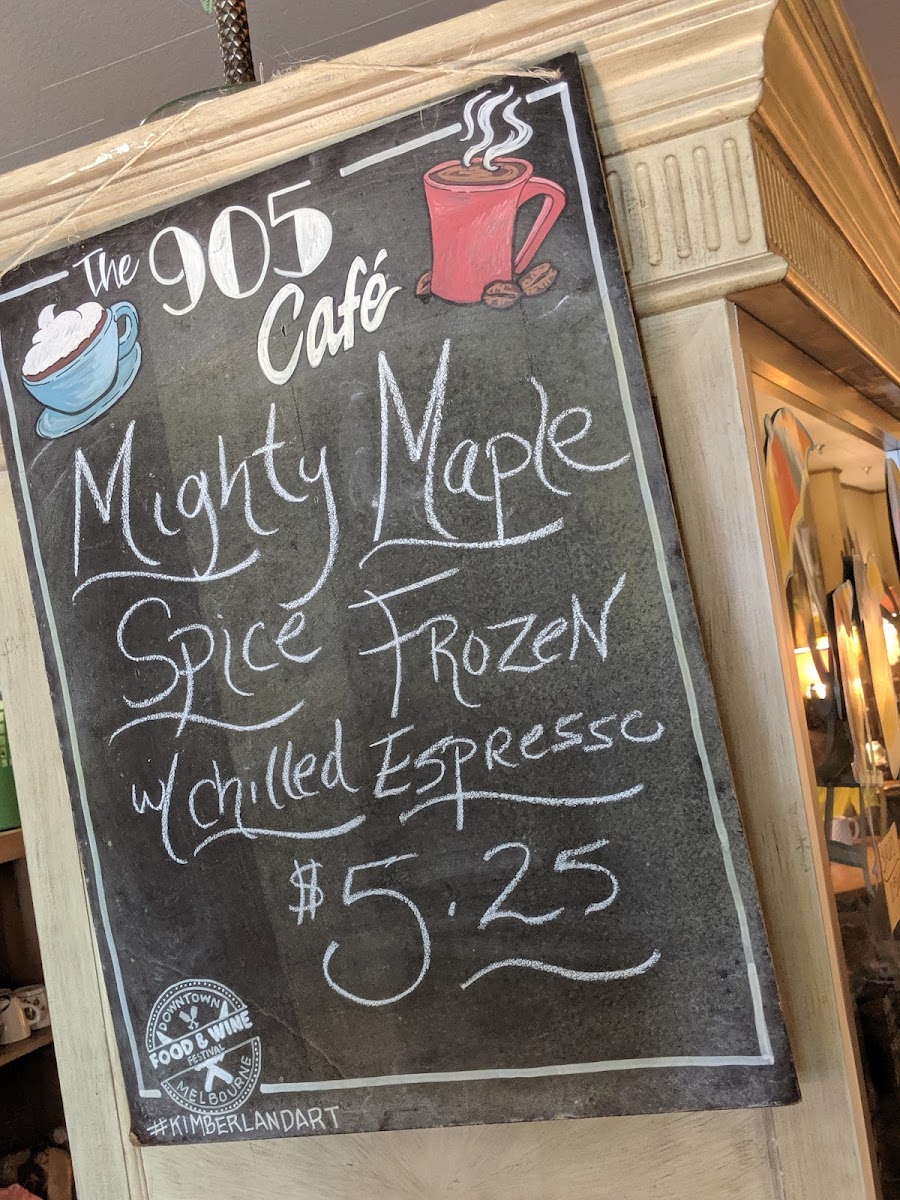 The 905
Café
Mighty Maple
Spice Frozen
w/ chilled Espresso
$5.25
DOWNTOWN
FOOD & WINE
FESTIVAL
MELBOURNE
#KIMBERLANDART